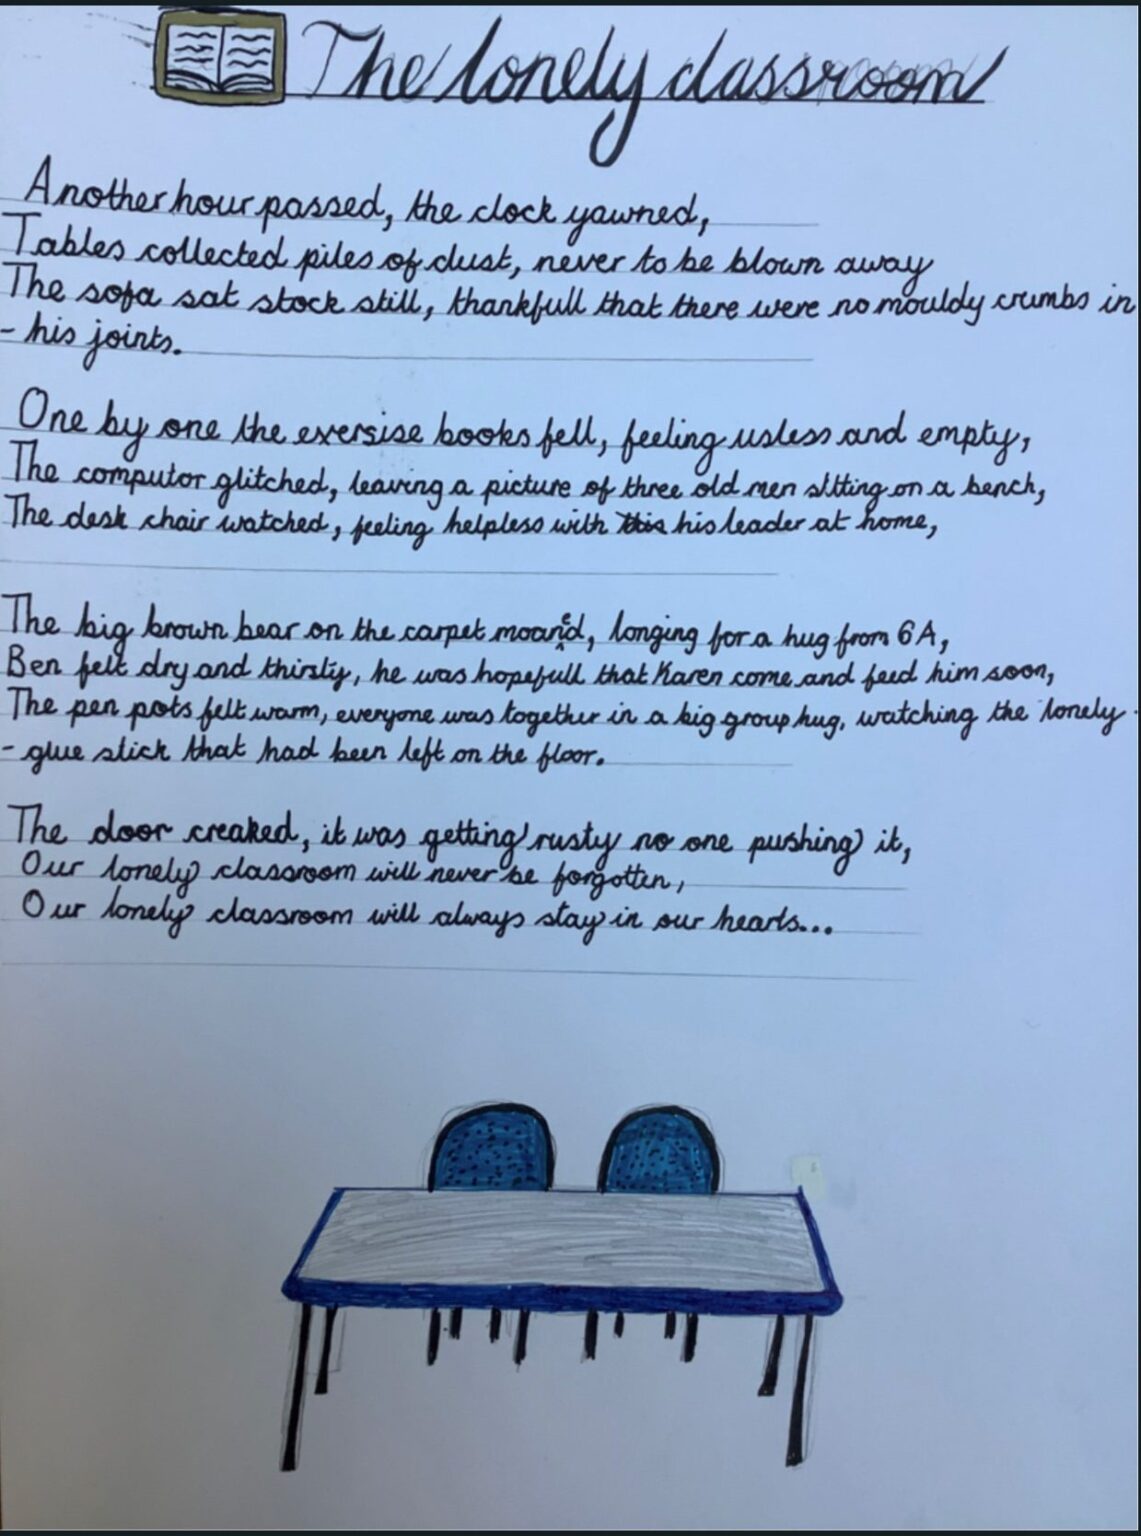 The lonely classroom
Another hour passed, the clock yawned,
Tables collected piles of dust, never to be blown away
The sofa sat stock still, thankfull that there were no mouldy crumbs in
- his joints.
One by one the exersise books fell, feeling usless and empty,
The computor glitched, leaving a picture of three old men sitting on a bench,
The desk chair watched, feeling helpless with this his leader at home,
The big brown bear on the carpet moaned, longing for a hug from 6A,
Ben felt dry and thirsty, he was hopefull that Karen come and feed him soon,
The pen pots felt warm, everyone was together in a big group hug, watching the lonely
- glue stick that had been left on the floor.
The door creaked, it was getting rusty no one pushing it,
Our lonely classroom will never be forgotten,
Our lonely classroom will always stay in our hearts...